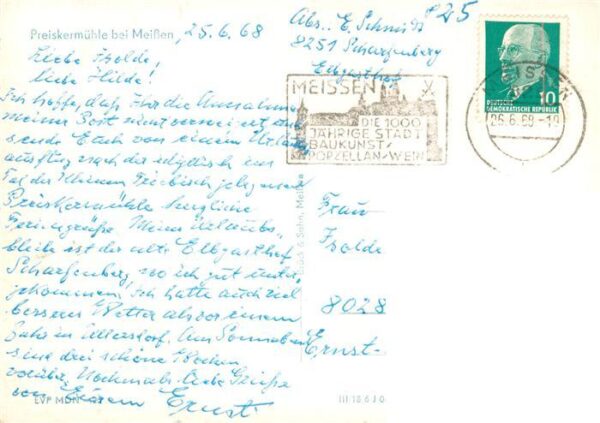 Preiskermühle bei Meißen, 25.6.68
Liebe Isolde!
liebe Hilde!
Ich hoffe, daß Ihr die Annahme
meiner Post nicht verweigert und
sende Euch von einem Urlaubs
ausflug nach der idyllisch im
Tal der kleinen Triebisch gelegenen
Preiskermühle herzliche
Feriengrüße. Meine Urlaubs-
bleibe ist der alte Elbgasthof
Scharfenberg, wo ich gut unter-
gekommen. Ich hatte auch viel
besseres Wetter als vor einem
Jahr in Ullersdorf. Am Sonnabend
sind drei schöne Wochen
vorüber. Nochmals liebe Grüße
von Eurem Ernst
EVP MDN
Abs.: E. Schmidt
8251 Scharfenberg
Elbgasthof
P 25
MEISSEN
DIE 1000
JÄHRIGE STADT
BAUKUNST/
PORZELLAN/WEIN
26.6.68-19
10
DEUTSCHE
DEMOKRATISCHE REPUBLIK
& Sohn, Meißen
Frau
Isolde
8028
Ernst-
III 18 6 J 0